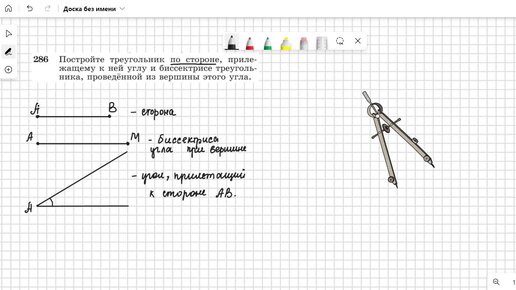 Доска без имени
286 Постройте треугольник по стороне, приле-
жащему к ней углу и биссектрисе треуголь-
ника, проведённой из вершины этого угла.
A B - сторона
A M - биссектриса
угла при вершине
A - угол, прилежащий
к стороне AB.
1